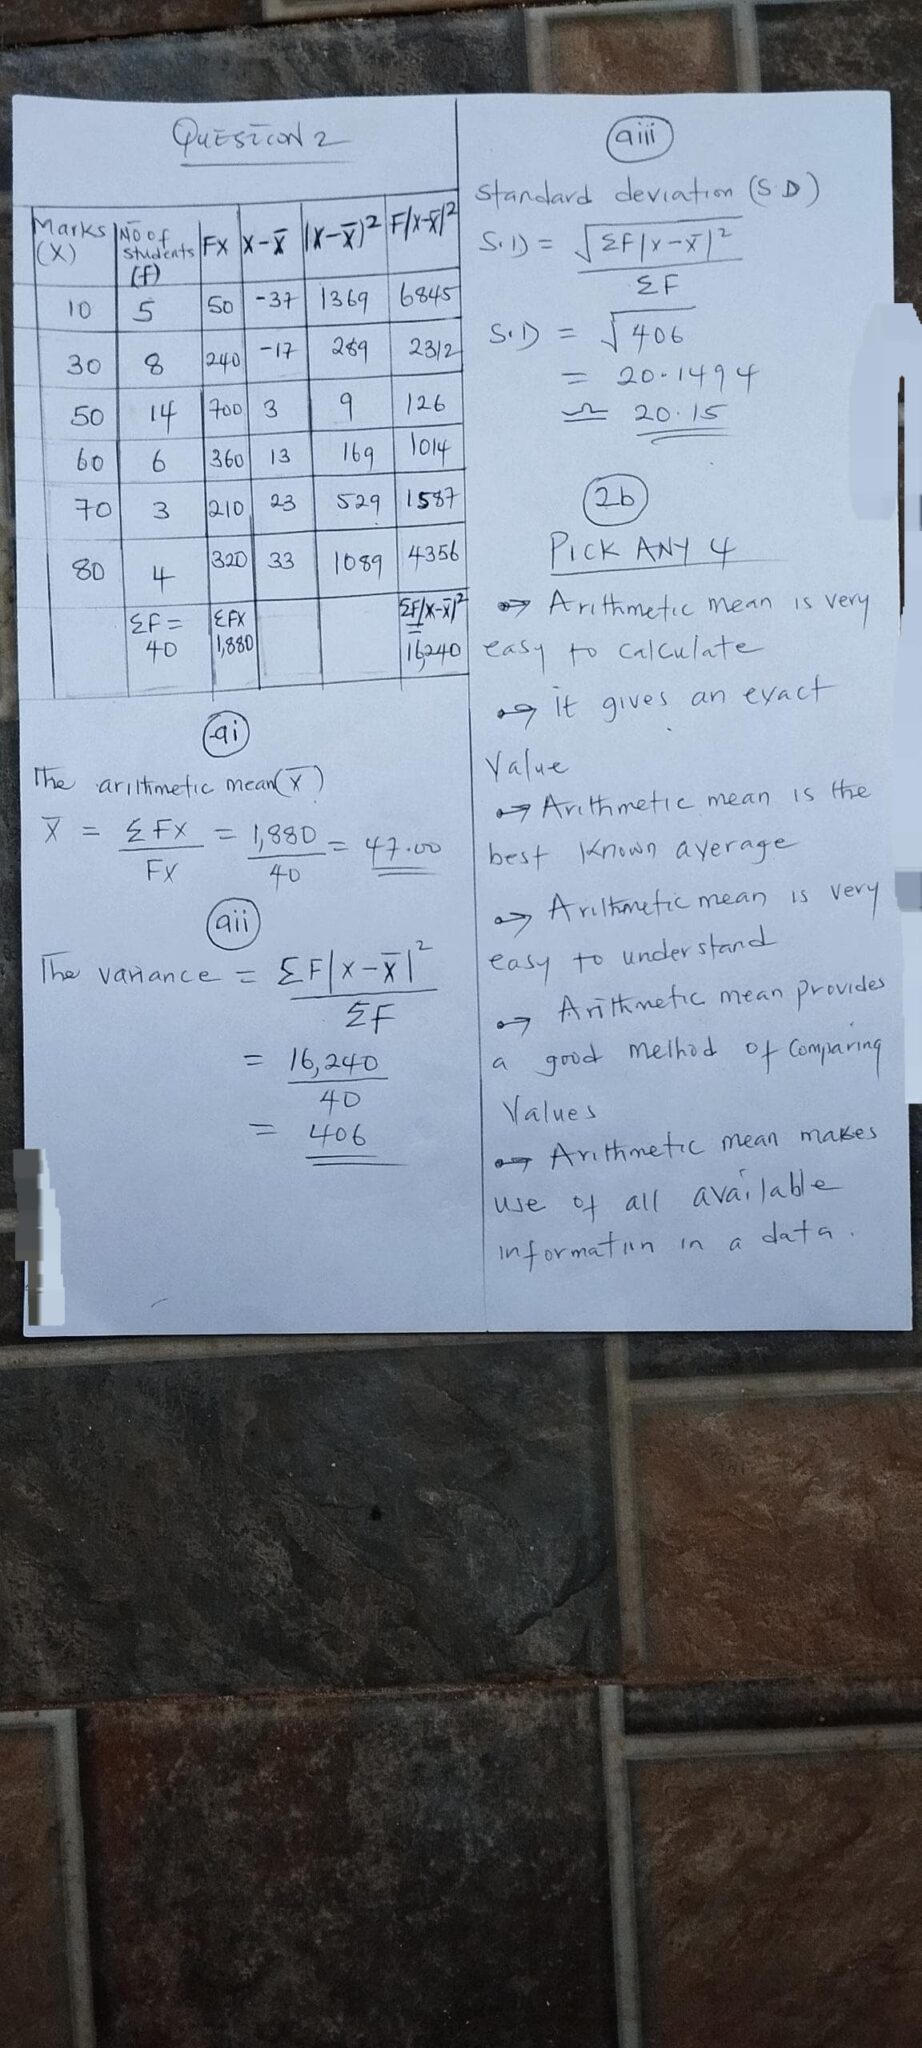 QUESTION 2
Marks (X) | No of students (f) | Fx | x-x̄ | |x-x̄|² | F|x-x̄|²
10 | 5 | 50 | -37 | 1369 | 6845
30 | 8 | 240 | -17 | 289 | 2312
50 | 14 | 700 | 3 | 9 | 126
60 | 6 | 360 | 13 | 169 | 1014
70 | 3 | 210 | 23 | 529 | 1587
80 | 4 | 320 | 33 | 1089 | 4356
ΣF = 40 | ΣFX 1,880 | ΣF|x-x̄|² = 16,240
ai
The arithmetic mean(x̄)
x̄ = ΣFX / FX = 1,880 / 40 = 47.00
aii
The variance = ΣF|x-x̄|² / ΣF
= 16,240 / 40
= 406
aiii
Standard deviation (S.D)
S.D = √ΣF|x-x̄|² / ΣF
S.D = √406
= 20.1494
≃ 20.15
2b
PICK ANY 4
→ Arithmetic mean is very
easy to calculate
→ it gives an exact
Value
→ Arithmetic mean is the
best known average
→ Arithmetic mean is very
easy to understand
→ Arithmetic mean provides
a good method of comparing
Values
→ Arithmetic mean makes
use of all available
information in a data.